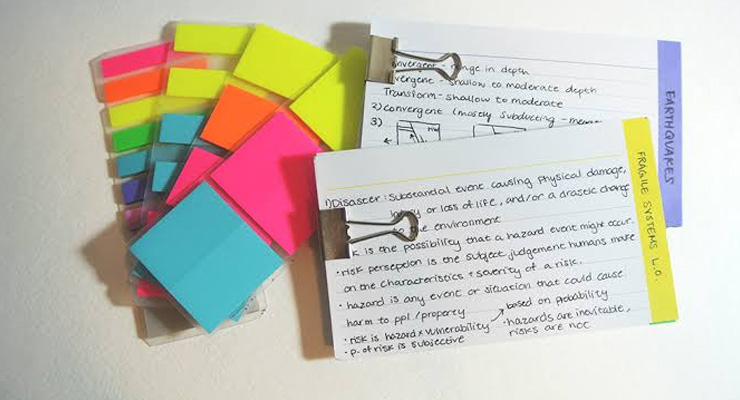 nge in depth
shallow to moderate depth
Transform - shallow to moderate
2) convergent (mostly subducting -
3)
EARTHQUAKES
1) Disaster: Substantial event causing physical damage,
or loss of life, and/or a drastic change
environment
k is the possibility that a hazard event might occur.
• risk perseption is the subject judgement humans make
on the characteristics + severity of a risk.
• hazard is any event or situation that could cause
harm to ppl/property
based on probability
• risk is hazard x vulnerability
• hazards are inevitable,
risks are not
• p. of risk is subjective
FRAGILE SYSTEMS L.O.